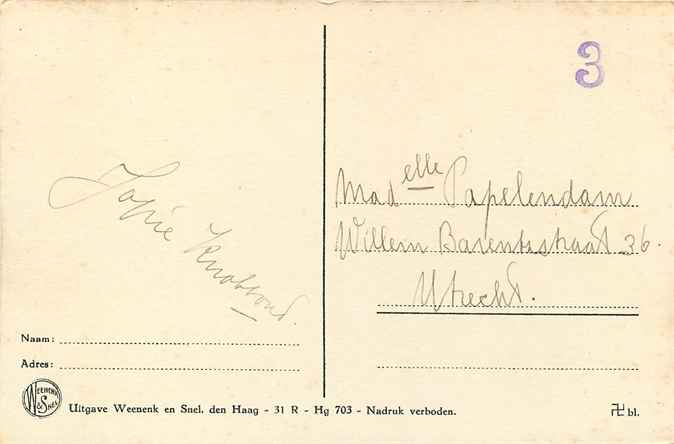 3
Madelle Papelendam
Willem Barentsstraat 36.
Utrecht.
Jopie
Naam:
Adres:
WEENENK & SNEL
Uitgave Weenenk en Snel, den Haag - 31 R - Hg 703 - Nadruk verboden.
卍 bl.